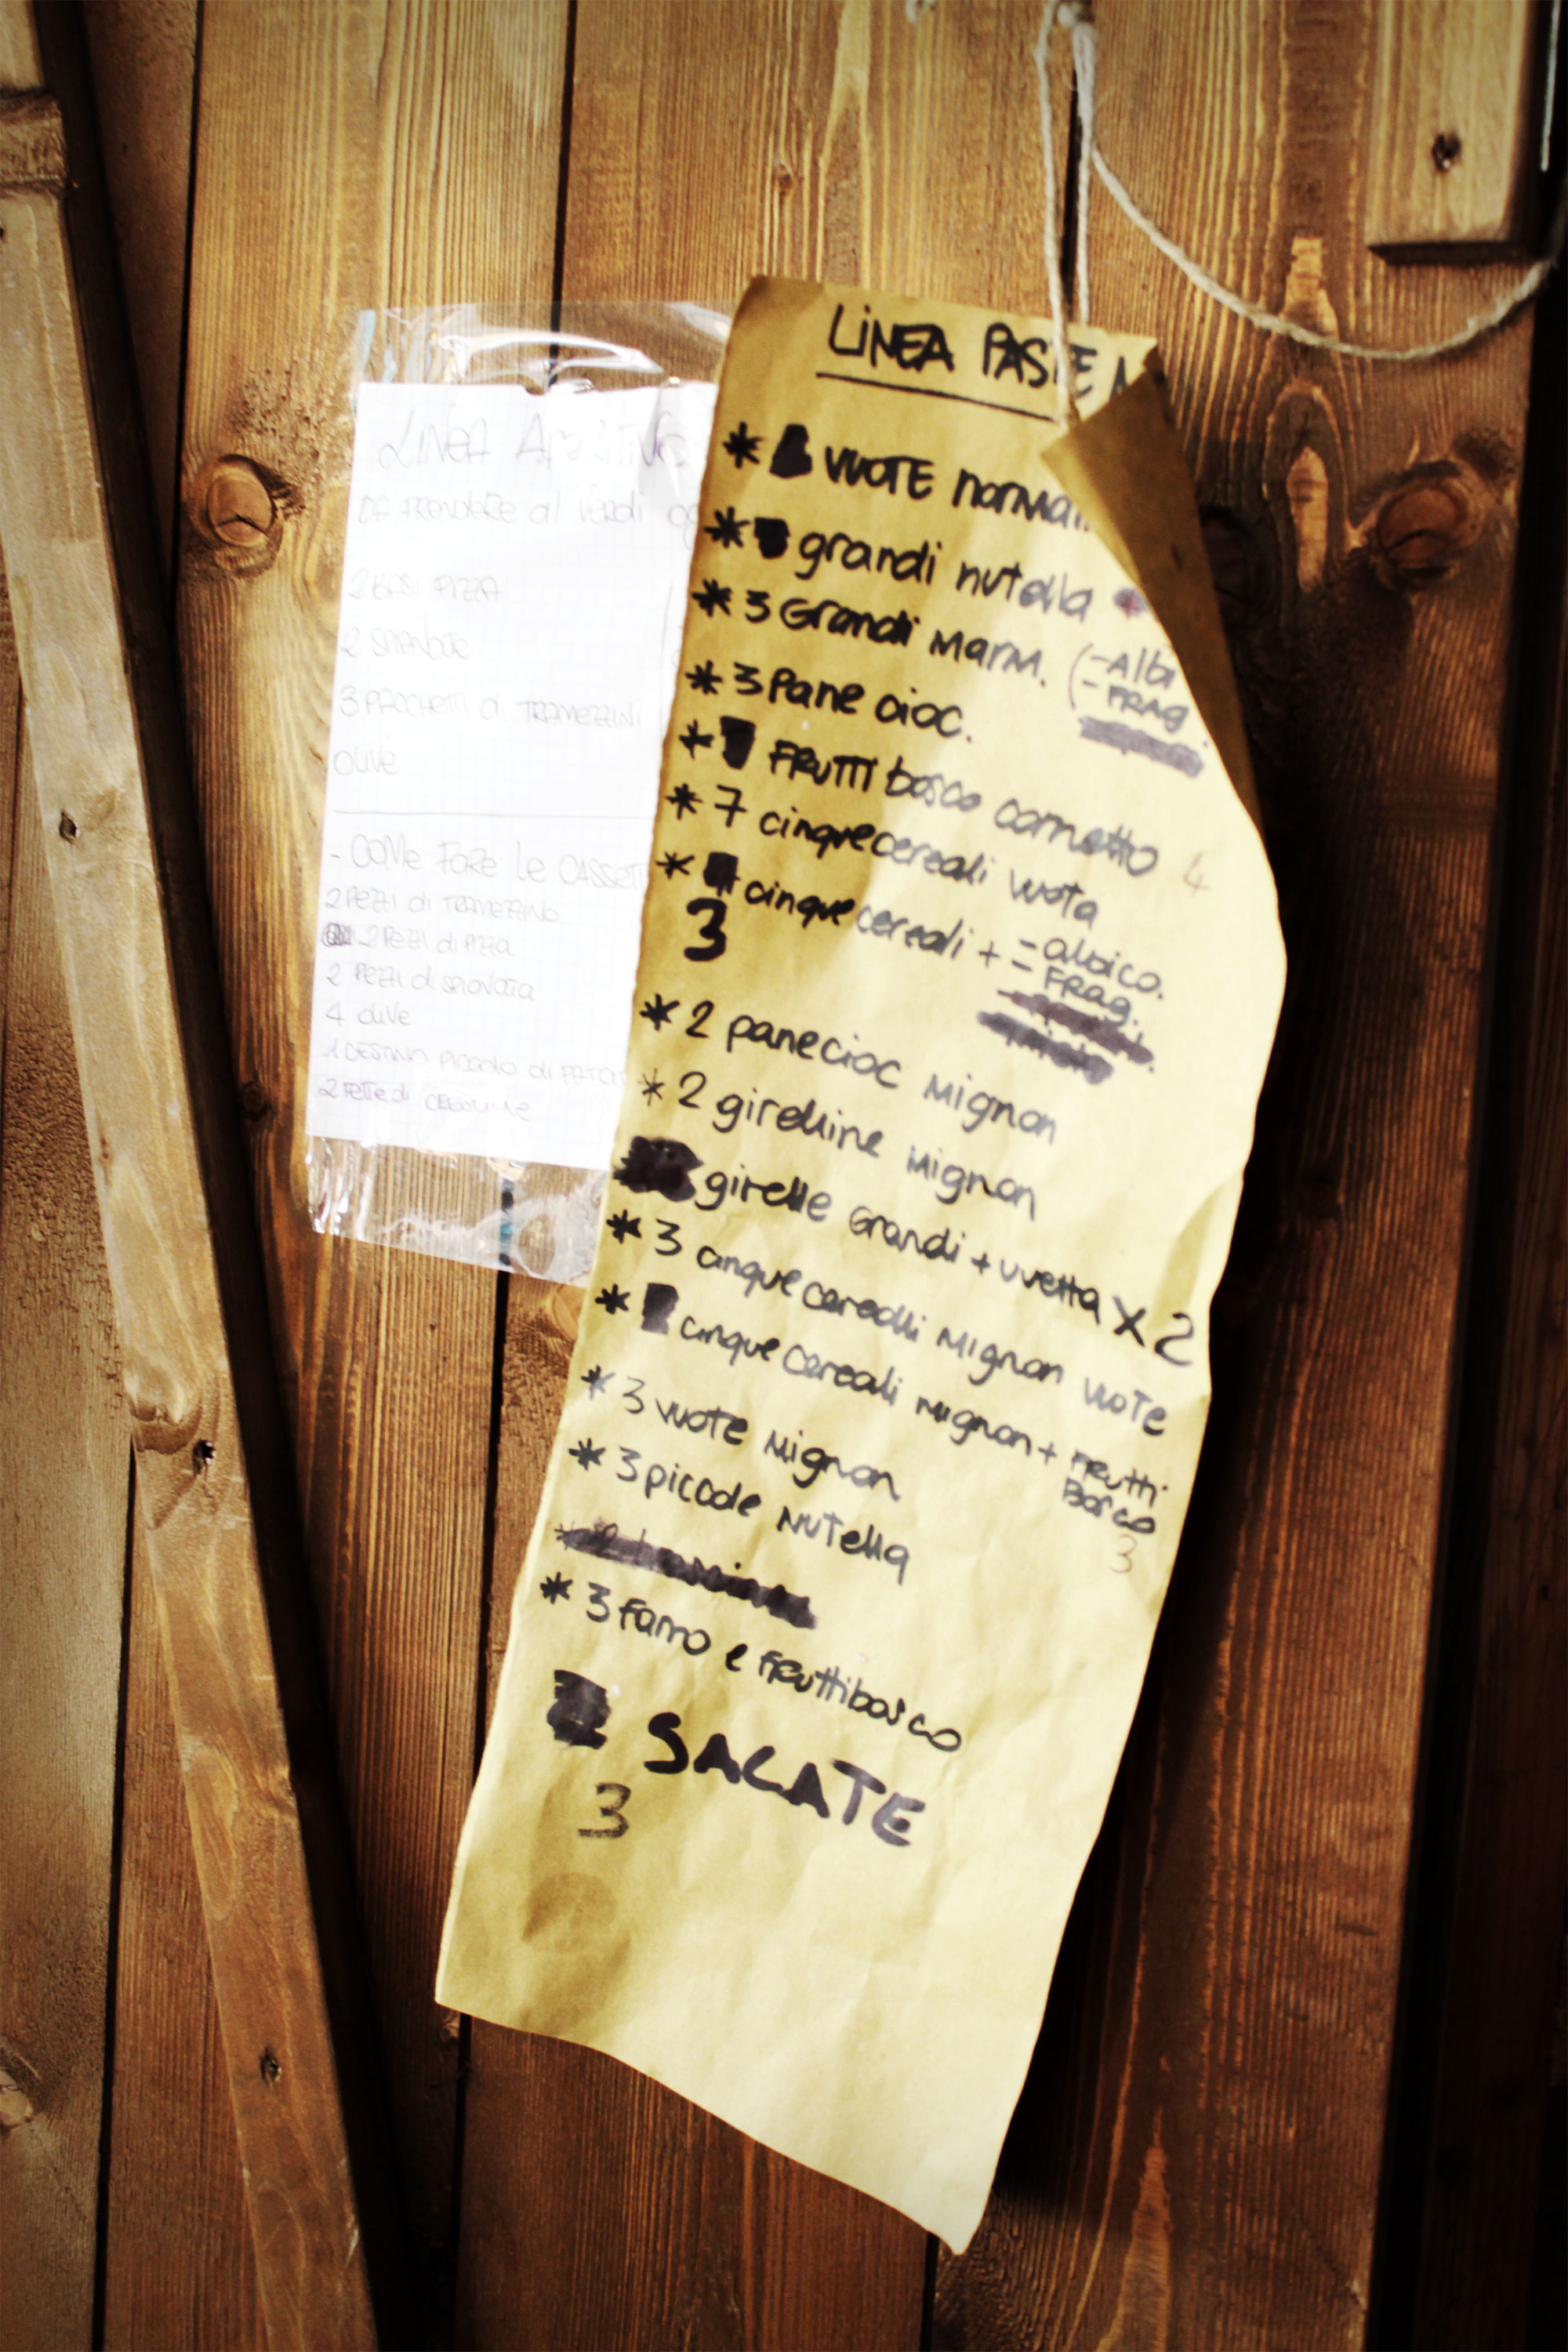 LINEA APERITIVO
DA PRENDERE al Verdi
2 BASI PIZZA
2 SPIANATE
3 PACCHETTI di TRAMEZZINI
OLIVE
- COME FARE le CASSETT
2 PEZZI di TRAMEZZINO
2 PEZZI di PIZZA
2 PEZZI di SPIANATA
4 OLIVE
1 CESTINO PICCOLO di PATA
2 FETTE di
LINEA PASTE
* VUOTE normal
* grandi nutella
* 3 Grandi MARM. (-Albi
- FRAG.
* 3 Pane cioc.
* FRUTTI bosco cornetto 4
* 7 cinque cereali vuota
* cinque cereali + - albico.
3 - FRAG.
* 2 pane cioc Mignon
* 2 girelline Mignon
girelle Grandi + uvetta X 2
* 3 cinque cereali Mignon vuote
* cinque cereali mignon + FRUTTI
BOSCO
3
* 3 vuote Mignon
* 3 piccole NUTELLA
* 3 Farro e FRUTTIbosco
SALATE
3